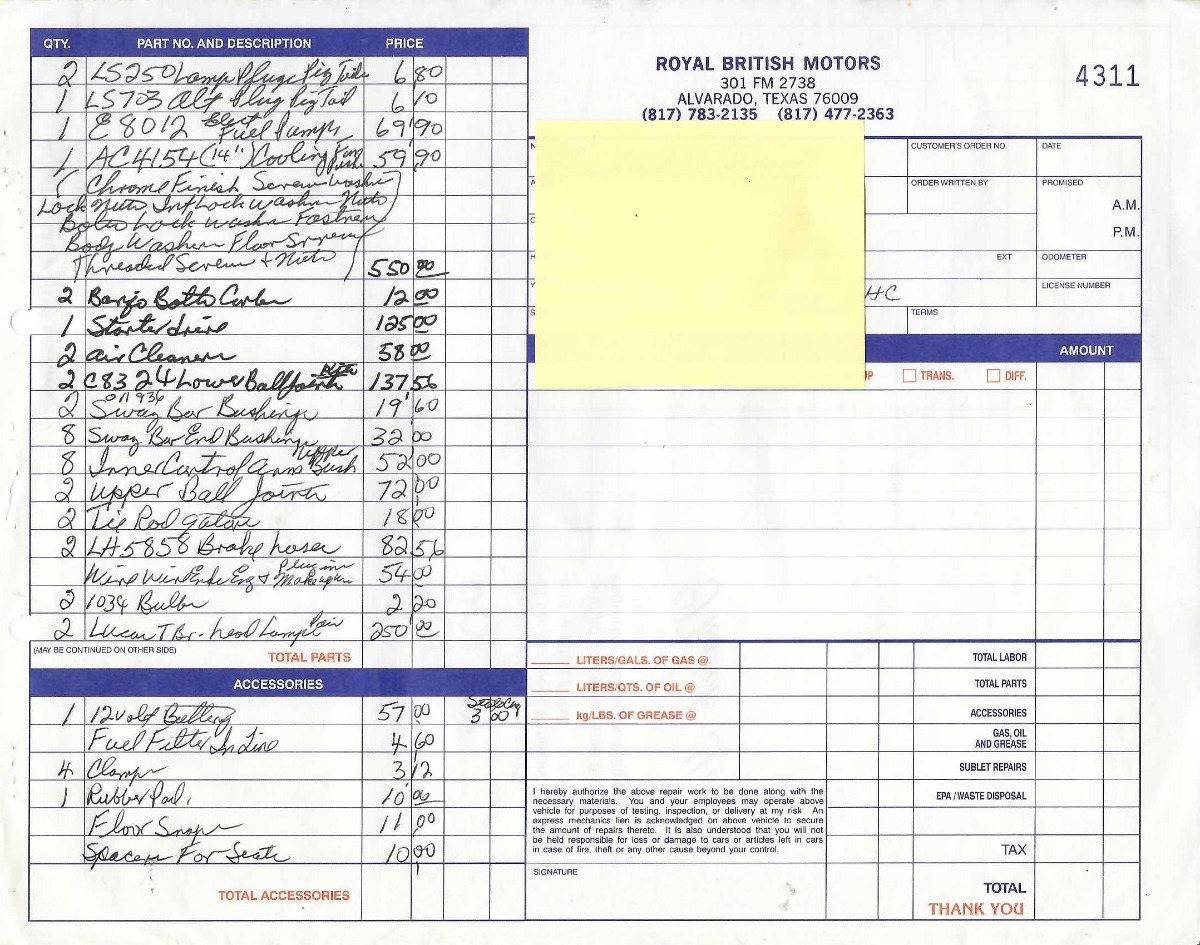 QTY. PART NO. AND DESCRIPTION PRICE
2 LS250 Lamp Plugs Pig Tails 6 80
1 LS703 Alt Plug Pig Tail 6 10
1 E8012 Elect Fuel Pump 69 90
1 AC4154 (14") Cooling Fan 59 90
Chrome Finish Screw Washer
Lock Nuts Int Lock Washer Nuts
Bolts Lock Washer Fastners
Body Washers Floor
Threaded Screws + Nuts 550 00
2 Banjo Bolts Carbs 12 00
1 Starter drive 125 00
2 Air Cleaners 58 00
2 C8324 Lower Ball Joints 137 56
011936
2 Sway Bar Bushings 19 60
8 Sway Bar End Bushings 32 00
8 Inner Control Arms Upper Bush 52 00
2 Upper Ball Joints 72 00
2 Tie Rod Gators 18 00
2 LH5858 Brake hoses 82 56
Wire Wire Ends Eng + 54 00
2 1034 Bulbs 2 20
2 Lucas TBr- head Lamps Pair 250 00
(MAY BE CONTINUED ON OTHER SIDE)
TOTAL PARTS
ACCESSORIES
1 12 volt Battery 57 00 3 00
Fuel Filter In Line 4 60
4 Clamps 3 12
1 Rubber Pad, 10 00
Floor Snaps 11 00
Spacers For Seats 10 00
TOTAL ACCESSORIES
ROYAL BRITISH MOTORS
301 FM 2738
ALVARADO, TEXAS 76009
(817) 783-2135 (817) 477-2363
4311
CUSTOMER'S ORDER NO. DATE
ORDER WRITTEN BY PROMISED
A.M.
P.M.
EXT. ODOMETER
HC LICENSE NUMBER
TERMS
AMOUNT
UP TRANS. DIFF.
LITERS/GALS. OF GAS @ TOTAL LABOR
LITERS/QTS. OF OIL @ TOTAL PARTS
kg/LBS. OF GREASE @ ACCESSORIES
GAS, OIL
AND GREASE
SUBLET REPAIRS
EPA / WASTE DISPOSAL
I hereby authorize the above repair work to be done along with the
necessary materials. You and your employees may operate above
vehicle for purposes of testing, inspection, or delivery at my risk. An
express mechanics lien is acknowledged on above vehicle to secure
the amount of repairs thereto. It is also understood that you will not
be held responsible for loss or damage to cars or articles left in cars
in case of fire, theft or any other cause beyond your control.
TAX
SIGNATURE
TOTAL
THANK YOU